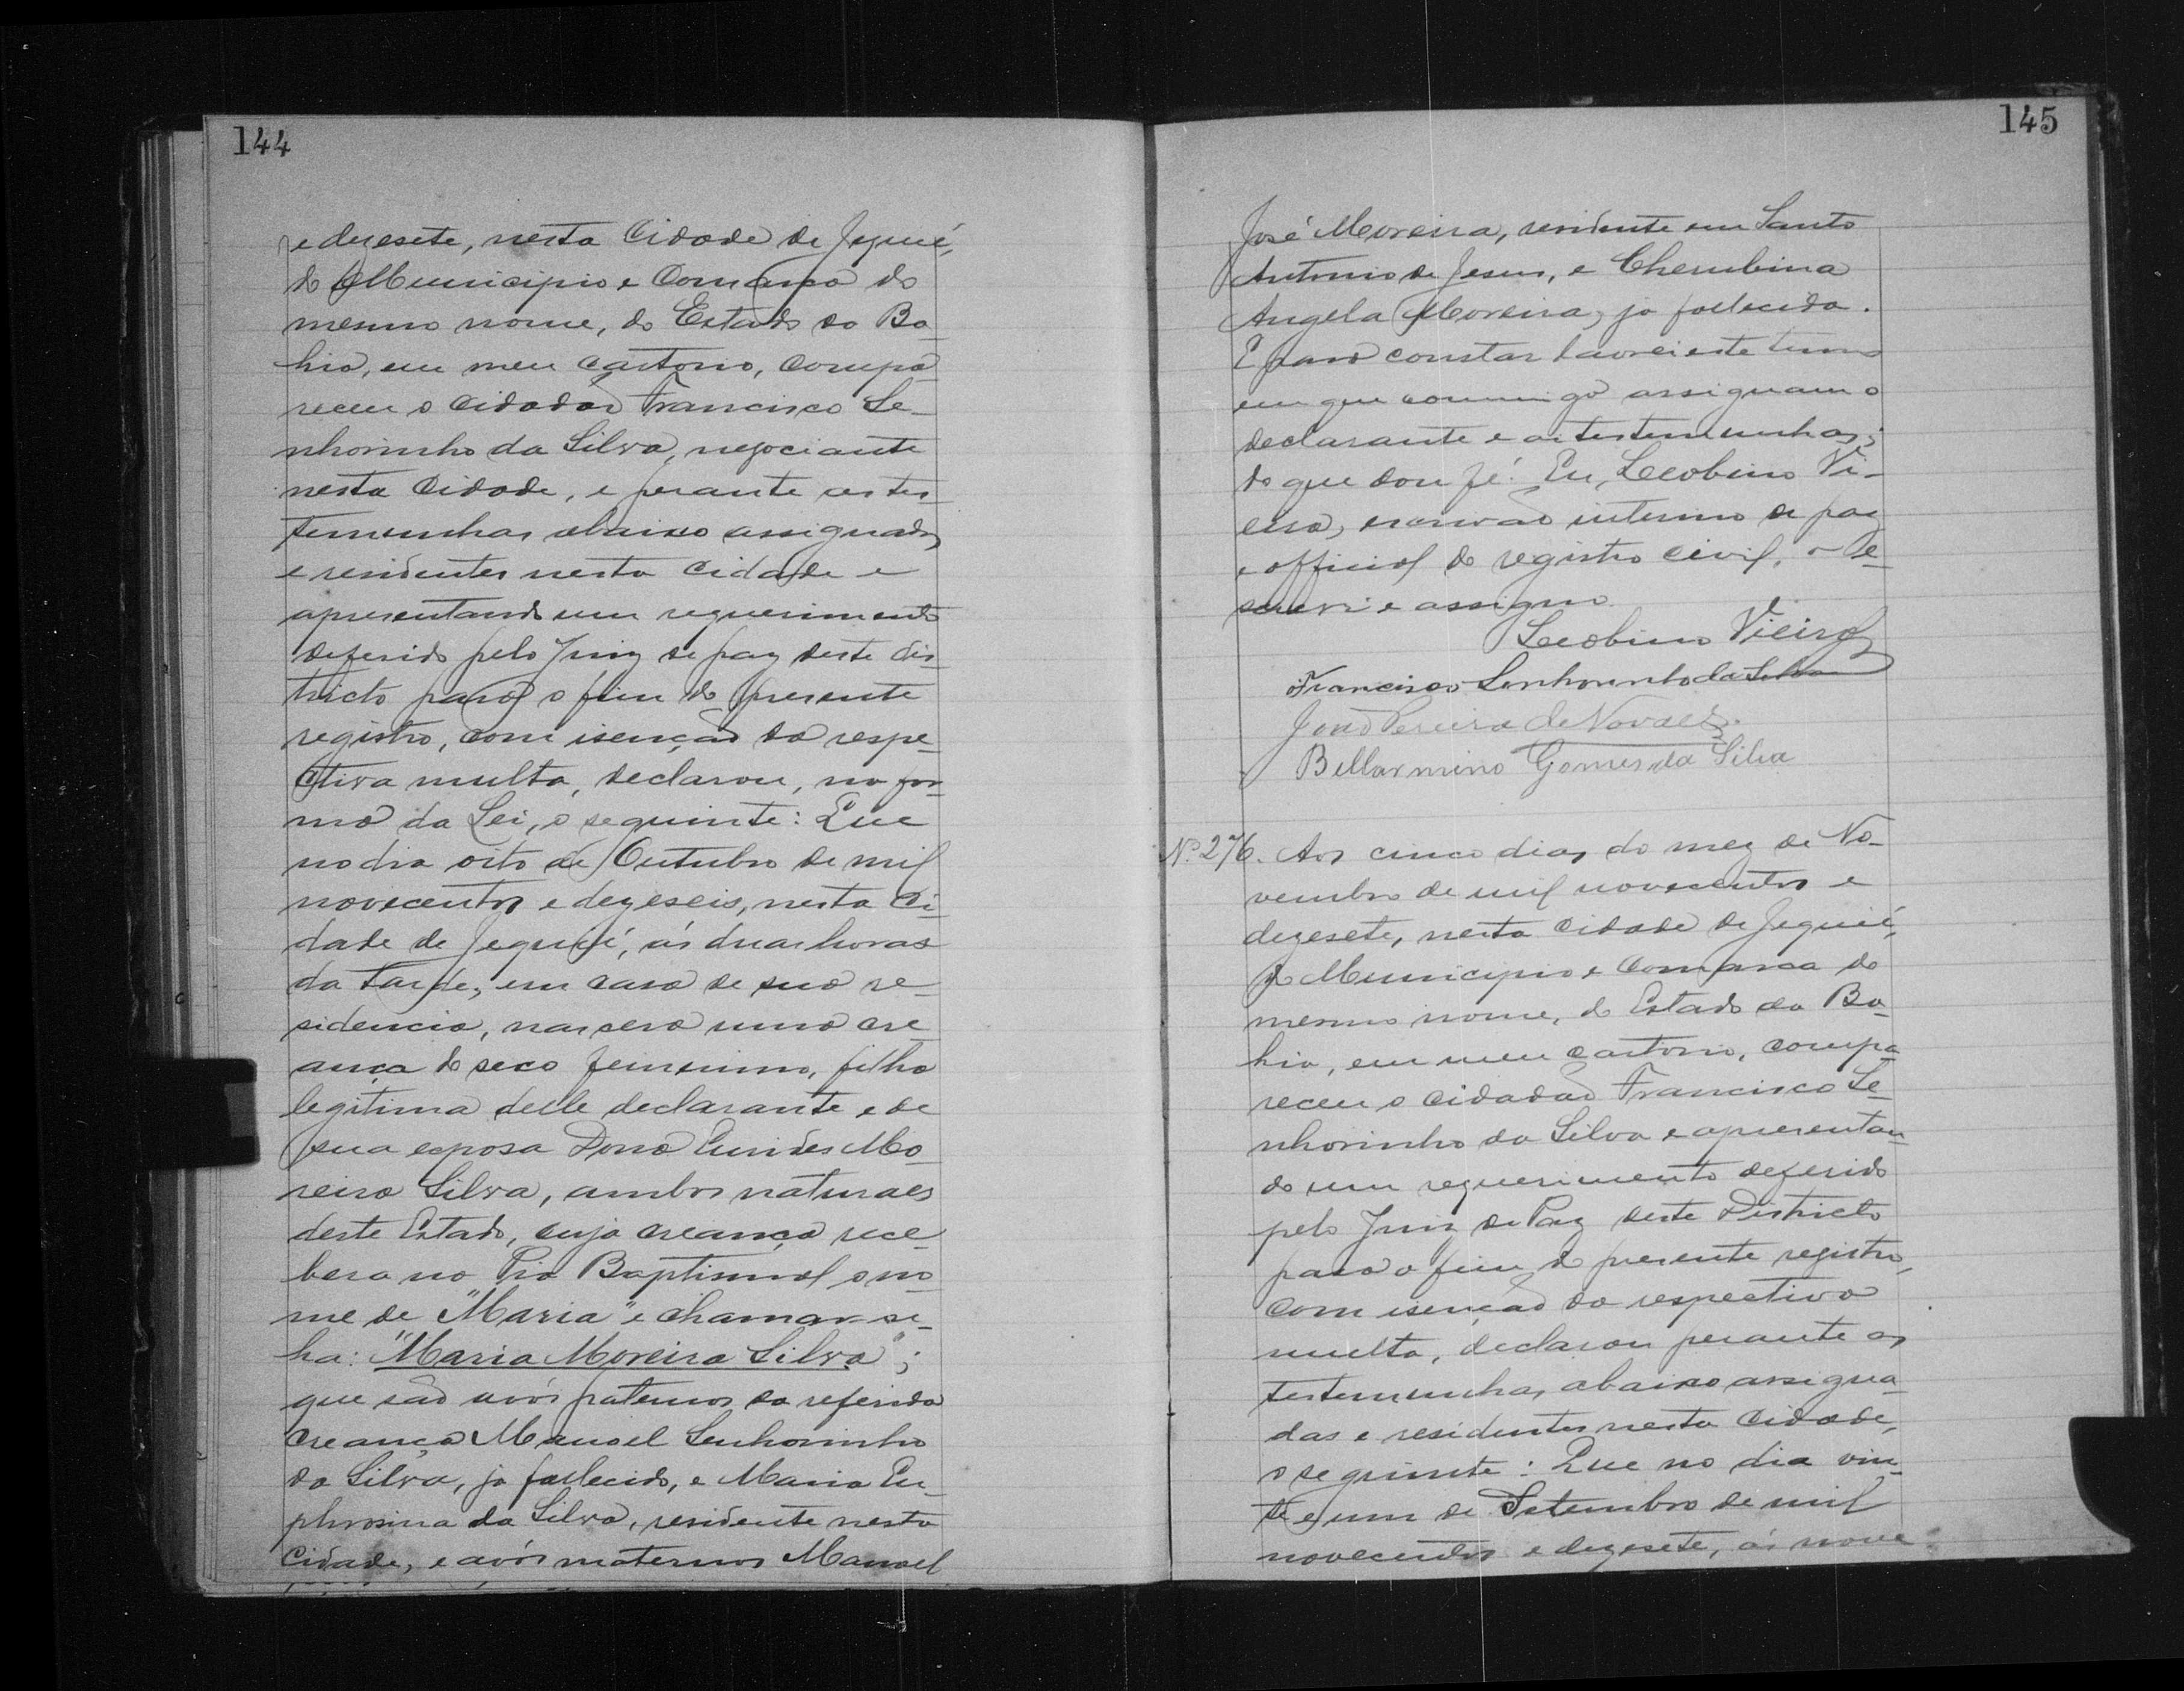 144
e dezesete, nesta Cidade de Jequié,
do Municipio e Comarca do
mesmo nome, do Estado da Ba-
hia, em meu cartorio, compa-
receu o cidadão Francisco Se-
nhorinho da Silva, negociante
nesta Cidade, e perante as tes-
temunhas abaixo assignadas
e residentes nesta cidade e
apresentando um requerimento
deferido pelo Juiz de paz deste dis-
tricto para o fim do presente
registro, com isenção da respe-
ctiva multa, declarou, na for-
ma da Lei, o seguinte: Que
no dia oito de Outubro de mil
novecentos e dezeseis, nesta Ci-
dade de Jequié, ás duas horas
da tarde, em casa de sua re-
sidencia, nascera uma cre
ança do sexo feminino, filha
legitima delle declarante e de
sua esposa Dona Eurides Mo-
reira Silva, ambos naturaes
deste Estado, cuja creança rece-
bera na Pia Baptismal o no-
me de "Maria" e chamar-se-
ha: "Maria Moreira Silva";
que são avós paternos da referida
creança Manoel Senhorinho
da Silva, ja fallecido, e Maria Eu-
phrosina da Silva, residente nesta
Cidade, e avós maternos Manoel
145
José Moreira, residente em Santo
Antonio de Jesus, e Cherubina
Angela Moreira, ja fallecida.
E para constar lavrei este termo
em que commigo assignam o
declarante e as testemunhas;
do que dou fé. Eu, Leobino Vi-
eira, escrivão interino de paz
e official do registro civil, o es-
crevi e assigno.
Leobino Vieira
Francisco Senhorinho da Silva
João Pereira de Novaes.
Bellarmino Gomes da Silva
Nº 276. Aos cinco dias do mez de No-
vembro de mil novecentos e
dezesete, nesta cidade de Jequié,
do Municipio e Comarca do
mesmo nome, do Estado da Ba-
hia, em meu cartorio, compa-
receu o cidadão Francisco Se-
nhorinho da Silva e apresentan-
do um requerimento deferido
pelo Juiz de Paz deste Districto
para o fim do presente registro,
com isenção da respectiva
multa, declarou perante as
testemunhas abaixo assigna-
das e residentes nesta Cidade,
o seguinte: Que no dia vin-
te e um de Setembro de mil
novecentos e dezesete, ás nove